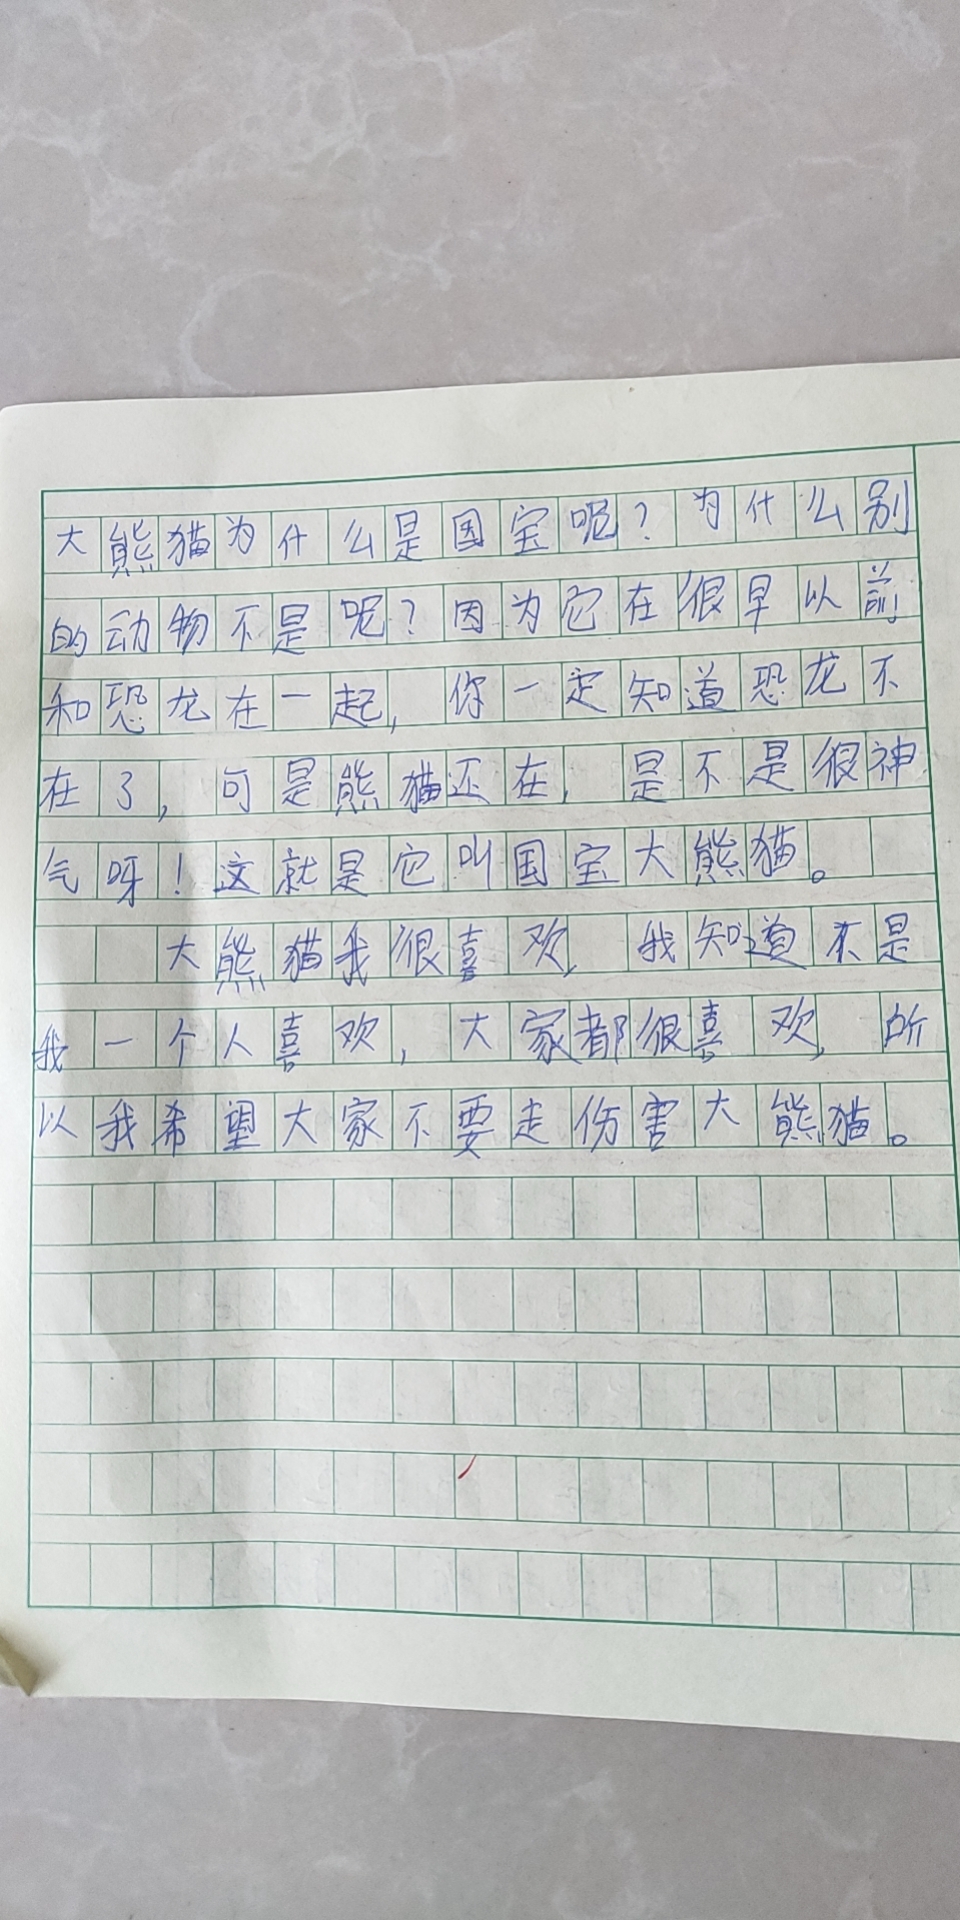 大熊猫为什么是国宝呢？为什么别
的动物不是呢？因为它在很早以前
和恐龙在一起，你一定知道恐龙不
在了，可是熊猫还在，是不是很神
气呀！这就是它叫国宝大熊猫。
大熊猫我很喜欢，我知道不是
我一个人喜欢，大家都很喜欢，所
以我希望大家不要走伤害大熊猫。